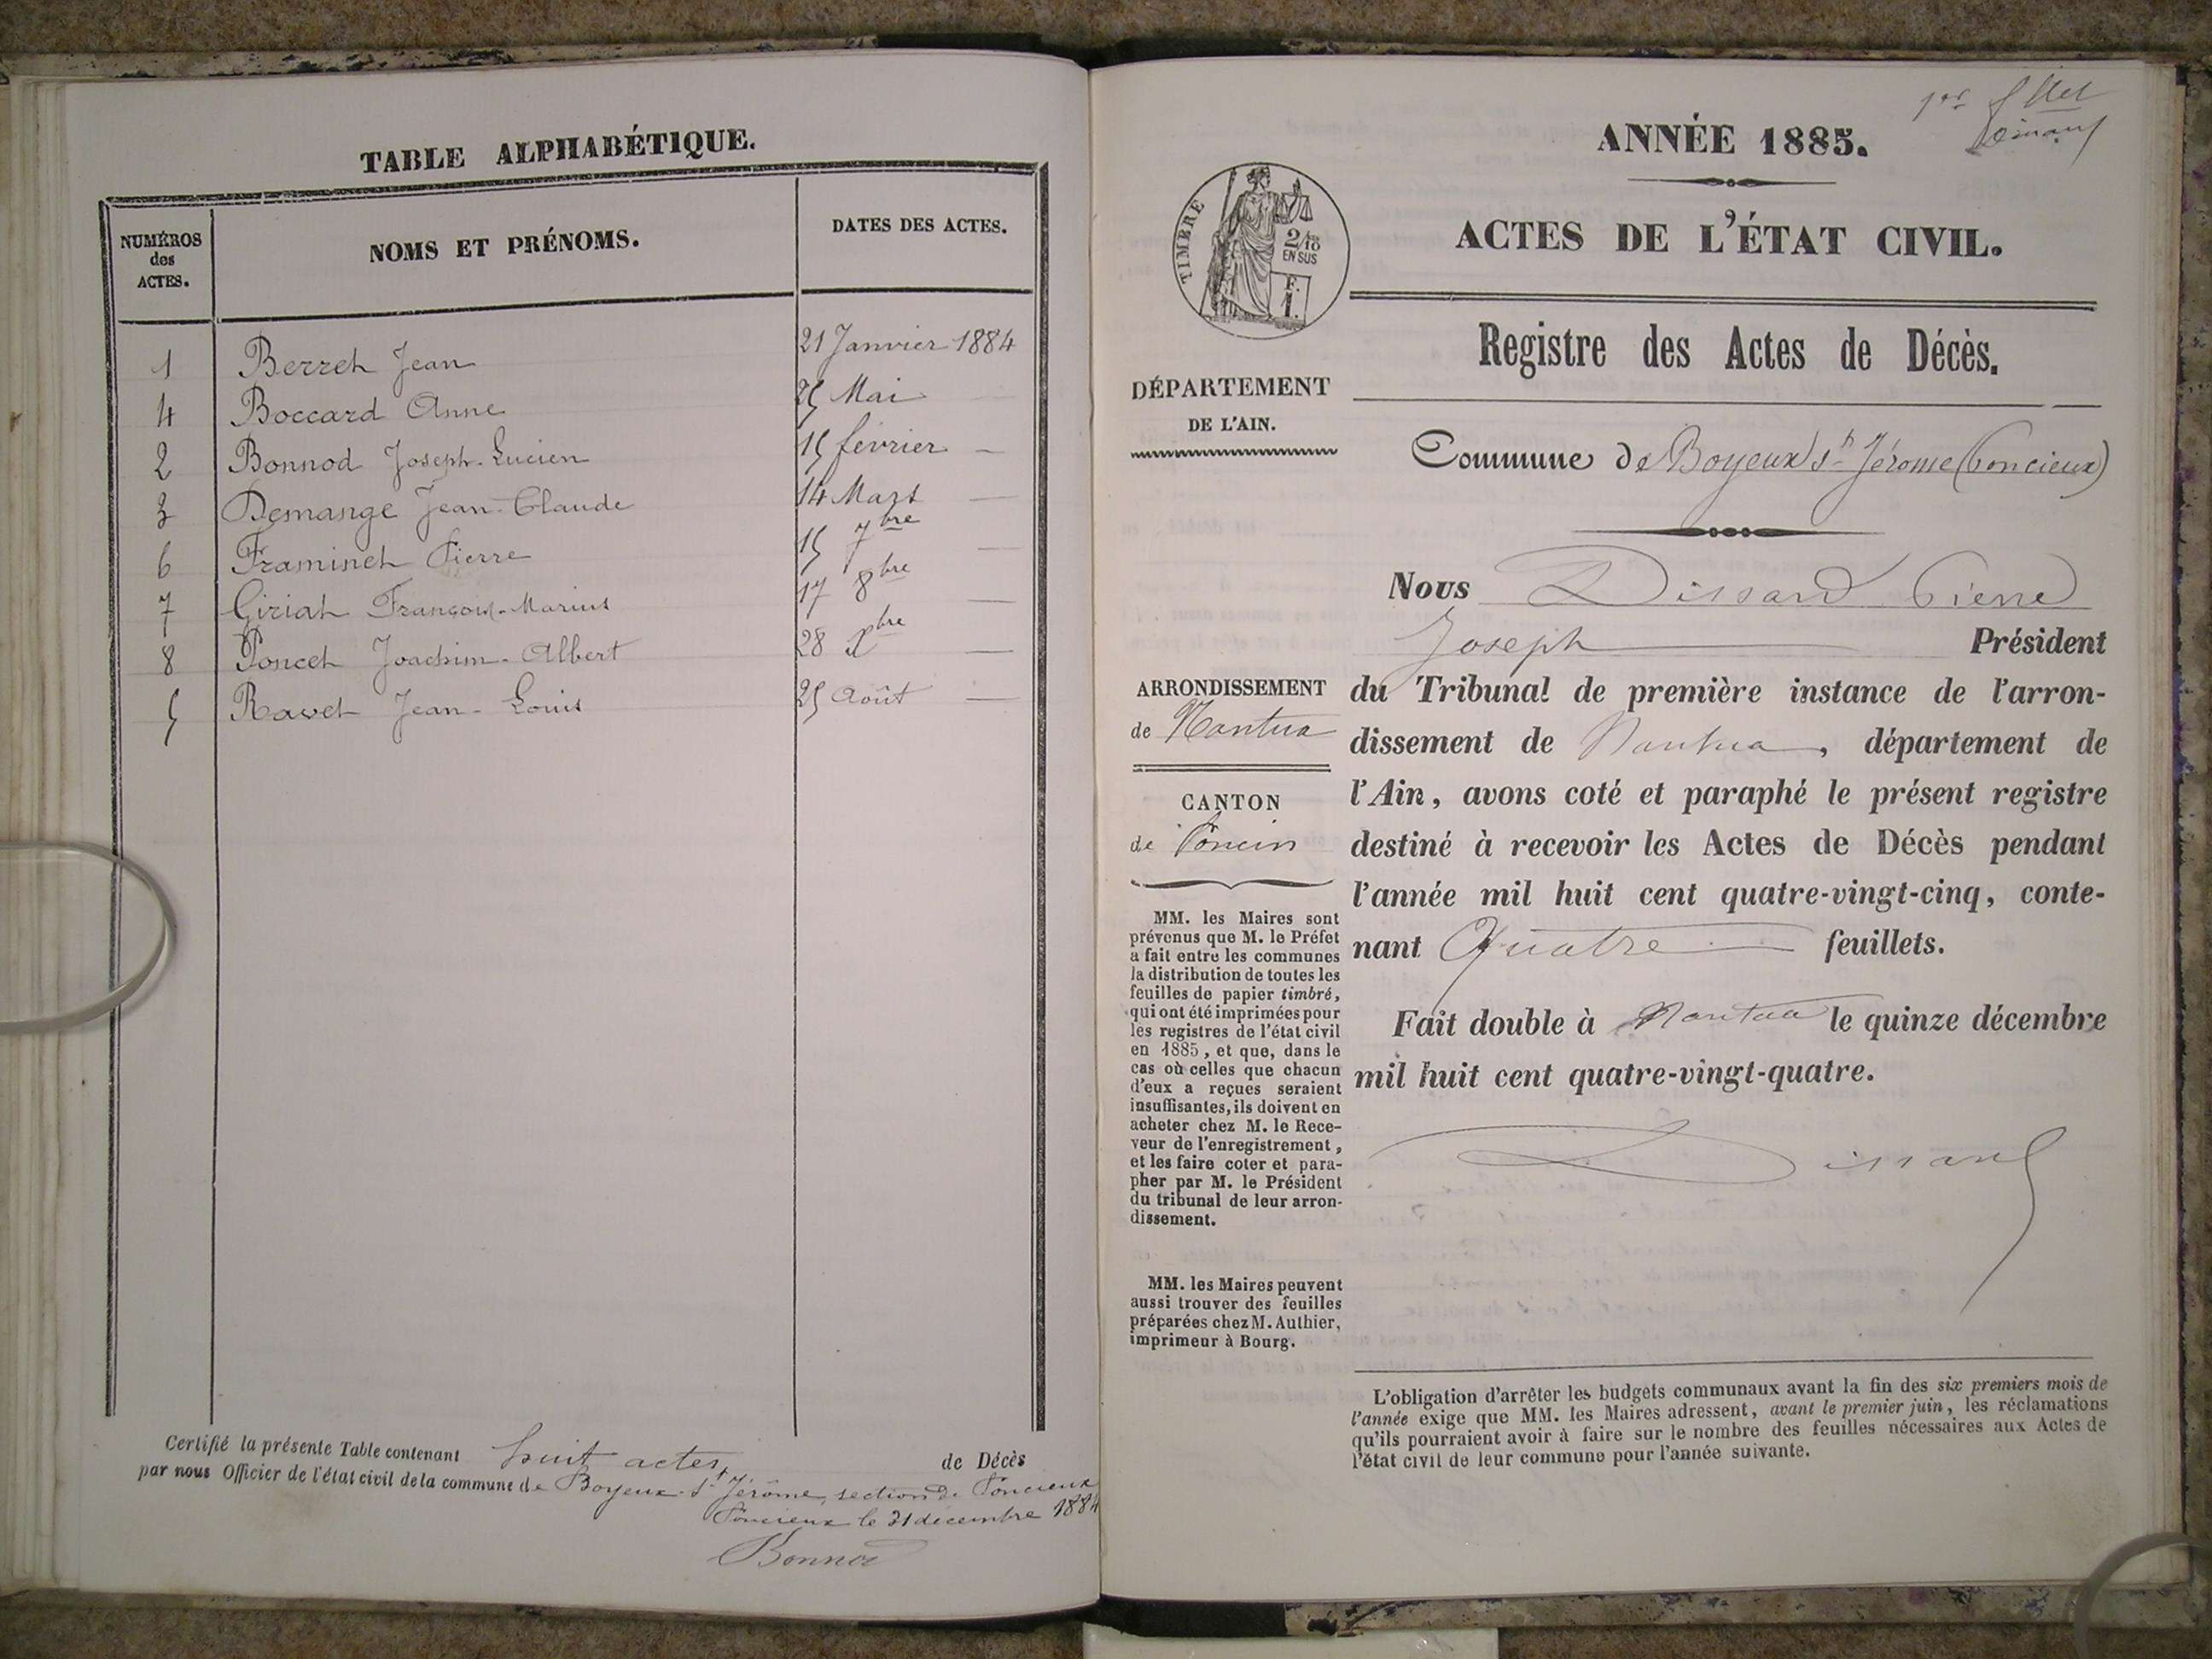 TABLE ALPHABÉTIQUE.
NUMÉROS des ACTES. NOMS ET PRÉNOMS. DATES DES ACTES.
1 Berret Jean 21 Janvier 1884
4 Boccard Anne 25 Mai
2 Bonnod Joseph-Lucien 15 février —
3 Demange Jean-Claude 14 Mars —
6 Framinet Pierre 15 7bre —
7 Giriat François-Marius 17 8bre —
8 Poncet Joachim-Albert 28 Xbre —
5 Ravet Jean-Louis 25 Août —
Certifié la présente Table contenant huit actes de Décès
par nous Officier de l'état civil de la commune de Boyeux-St Jérôme, section de Poncieux
Poncieux le 31 décembre 1884
Bonnod
1er fllet
ANNÉE 1885.
ACTES DE L'ÉTAT CIVIL.
TIMBRE
2/10
EN SUS
F.
1.
Registre des Actes de Décès.
DÉPARTEMENT
DE L'AIN.
Commune de Boyeux St Jérome (Poncieux)
Nous Dissard Pierre
Joseph Président
du Tribunal de première instance de l'arron-
dissement de Nantua, département de
l'Ain, avons coté et paraphé le présent registre
destiné à recevoir les Actes de Décès pendant
l'année mil huit cent quatre-vingt-cinq, conte-
nant Quatre feuillets.
Fait double à Nantua le quinze décembre
mil huit cent quatre-vingt-quatre.
Dissard
ARRONDISSEMENT
de Nantua
CANTON
de Poncin
MM. les Maires sont
prévenus que M. le Préfet
a fait entre les communes
la distribution de toutes les
feuilles de papier timbré,
qui ont été imprimées pour
les registres de l'état civil
en 1885, et que, dans le
cas où celles que chacun
d'eux a reçues seraient
insuffisantes, ils doivent en
acheter chez M. le Rece-
veur de l'enregistrement,
et les faire coter et para-
pher par M. le Président
du tribunal de leur arron-
dissement.
MM. les Maires peuvent
aussi trouver des feuilles
préparées chez M. Authier,
imprimeur à Bourg.
L'obligation d'arrêter les budgets communaux avant la fin des six premiers mois de
l'année exige que MM. les Maires adressent, avant le premier juin, les réclamations
qu'ils pourraient avoir à faire sur le nombre des feuilles nécessaires aux Actes de
l'état civil de leur commune pour l'année suivante.